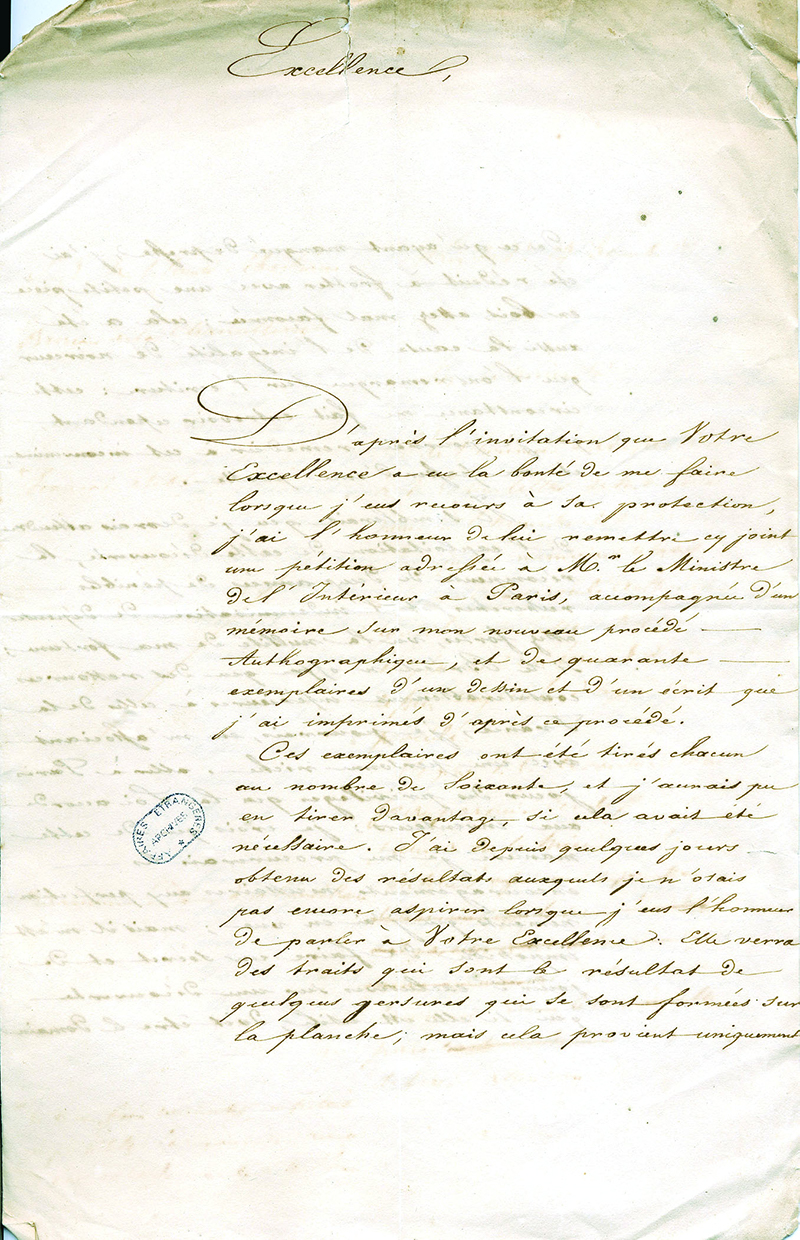 Excellence,
D'après l'invitation que Votre
Excellence a eu la bonté de me faire
lorsque j'eus recours à sa protection,
j'ai l'honneur de lui remettre cy joint
une pétition adressée à M.r le Ministre
de l'Intérieur à Paris, accompagnée d'un
mémoire sur mon nouveau procédé
Authographique, et de quarante
exemplaires d'un dessin et d'un écrit que
j'ai imprimés d'après ce procédé.
Ces exemplaires ont été tirés chacun
au nombre de Soixante, et j'aurais pu
en tirer davantage, si cela avait été
nécessaire. J'ai depuis quelques jours
obtenu des résultats auxquels je n'osais
pas encore aspirer lorsque j'eus l'honneur
de parler à Votre Excellence. Elle verra
des traits qui sont le résultat de
quelques gersures qui se sont formées sur
la planche; mais cela provient uniquement
AFFAIRES ETRANGERES
ARCHIVES